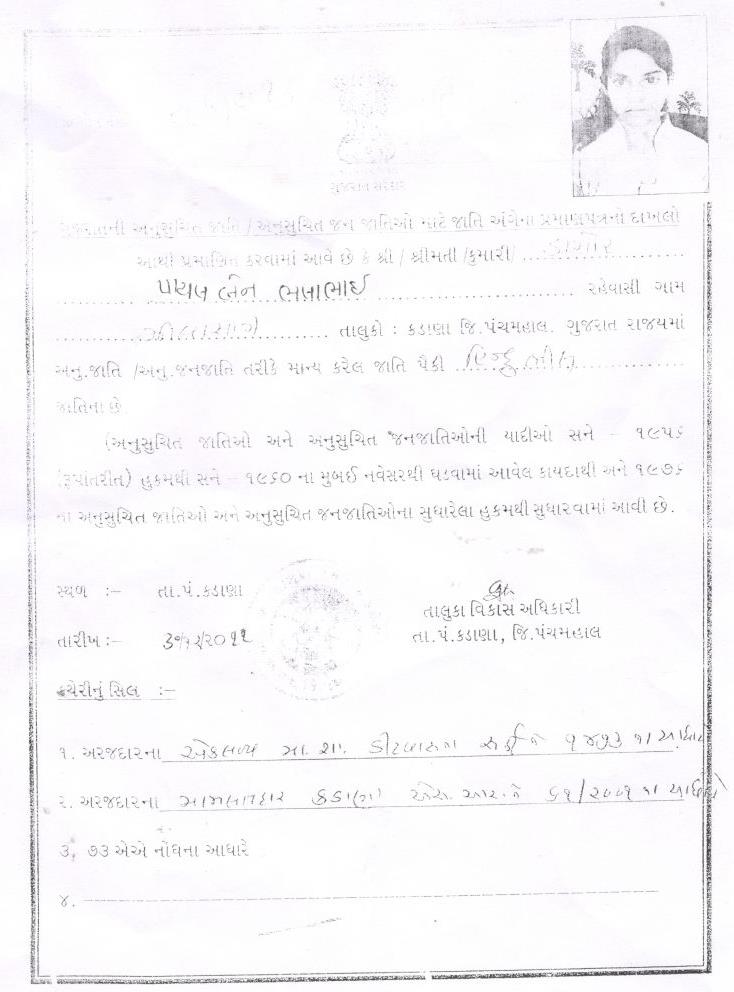 ગુજરાત સરકાર
ગુજરાતની અનુસુચિત જાતિ / અનુસુચિત જન જાતિઓ માટે જાતિ અંગેના પ્રમાણપત્રનો દાખલો
આથી પ્રમાણિત કરવામાં આવે છે કે શ્રી / શ્રીમતી /કુમારી/ ડામોર
ભણાભાઈ રહેવાસી ગામ
તાલુકો : કડાણા જિ.પંચમહાલ. ગુજરાત રાજયમાં
અનુ.જાતિ /અનુ.જનજાતિ તરીકે માન્ય કરેલ જાતિ પૈકી હિન્દુ ભીલ
જાતિના છે.
(અનુસુચિત જાતિઓ અને અનુસુચિત જનજાતિઓની યાદીઓ સને - ૧૯૫૬
(રૂપાંતરીત) હુકમથી સને - ૧૯૬૦ ના મુબઈ નવેસરથી ઘડવામાં આવેલ કાયદાથી અને ૧૯૭૬
ના અનુસુચિત જાતિઓ અને અનુસુચિત જનજાતિઓના સુધારેલા હુકમથી સુધારવામાં આવી છે.
સ્થળ :- તા.પં.કડાણા
તાલુકા વિકાસ અધિકારી
તારીખ:-
તા.પં.કડાણા, જિ.પંચમહાલ
કચેરીનું સિલ :-
૧. અરજદારના એકલવ્ય મા.શા. ડીટવાસના સર્ટી નં ૧૪૭૩ ના આધારે
૨. અરજદારના મામલતદાર કડાણા એસ.આર.નં ૬૧/૨૦૦૧ ના આધારે
૩, ૭૩ એએ નોંઘના આધારે
૪.